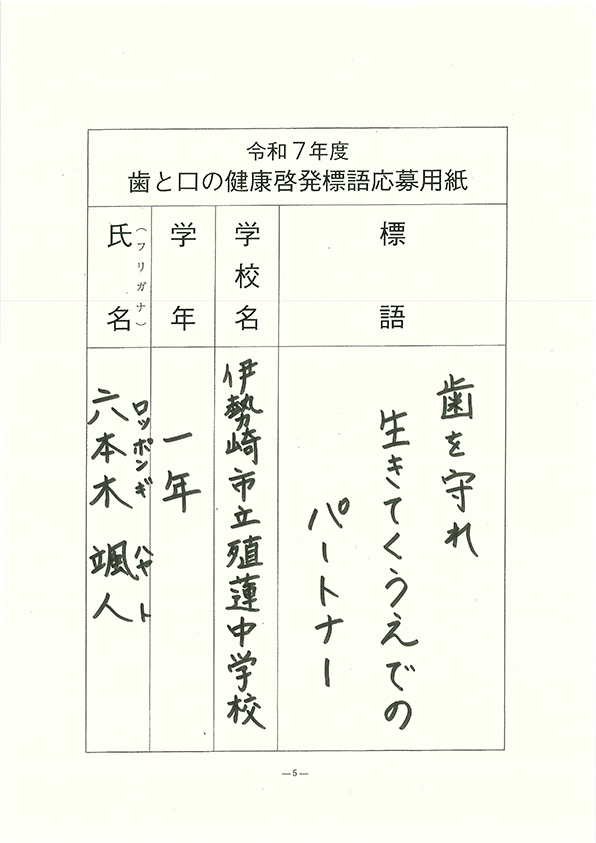 令和７年度
歯と口の健康啓発標語応募用紙
標語
歯を守れ
生きてくうえでの
パートナー
学校名
伊勢崎市立殖蓮中学校
学年
一年
氏名
(フリガナ)
ロッポンギ ハヤト
六本木 颯人
—5—